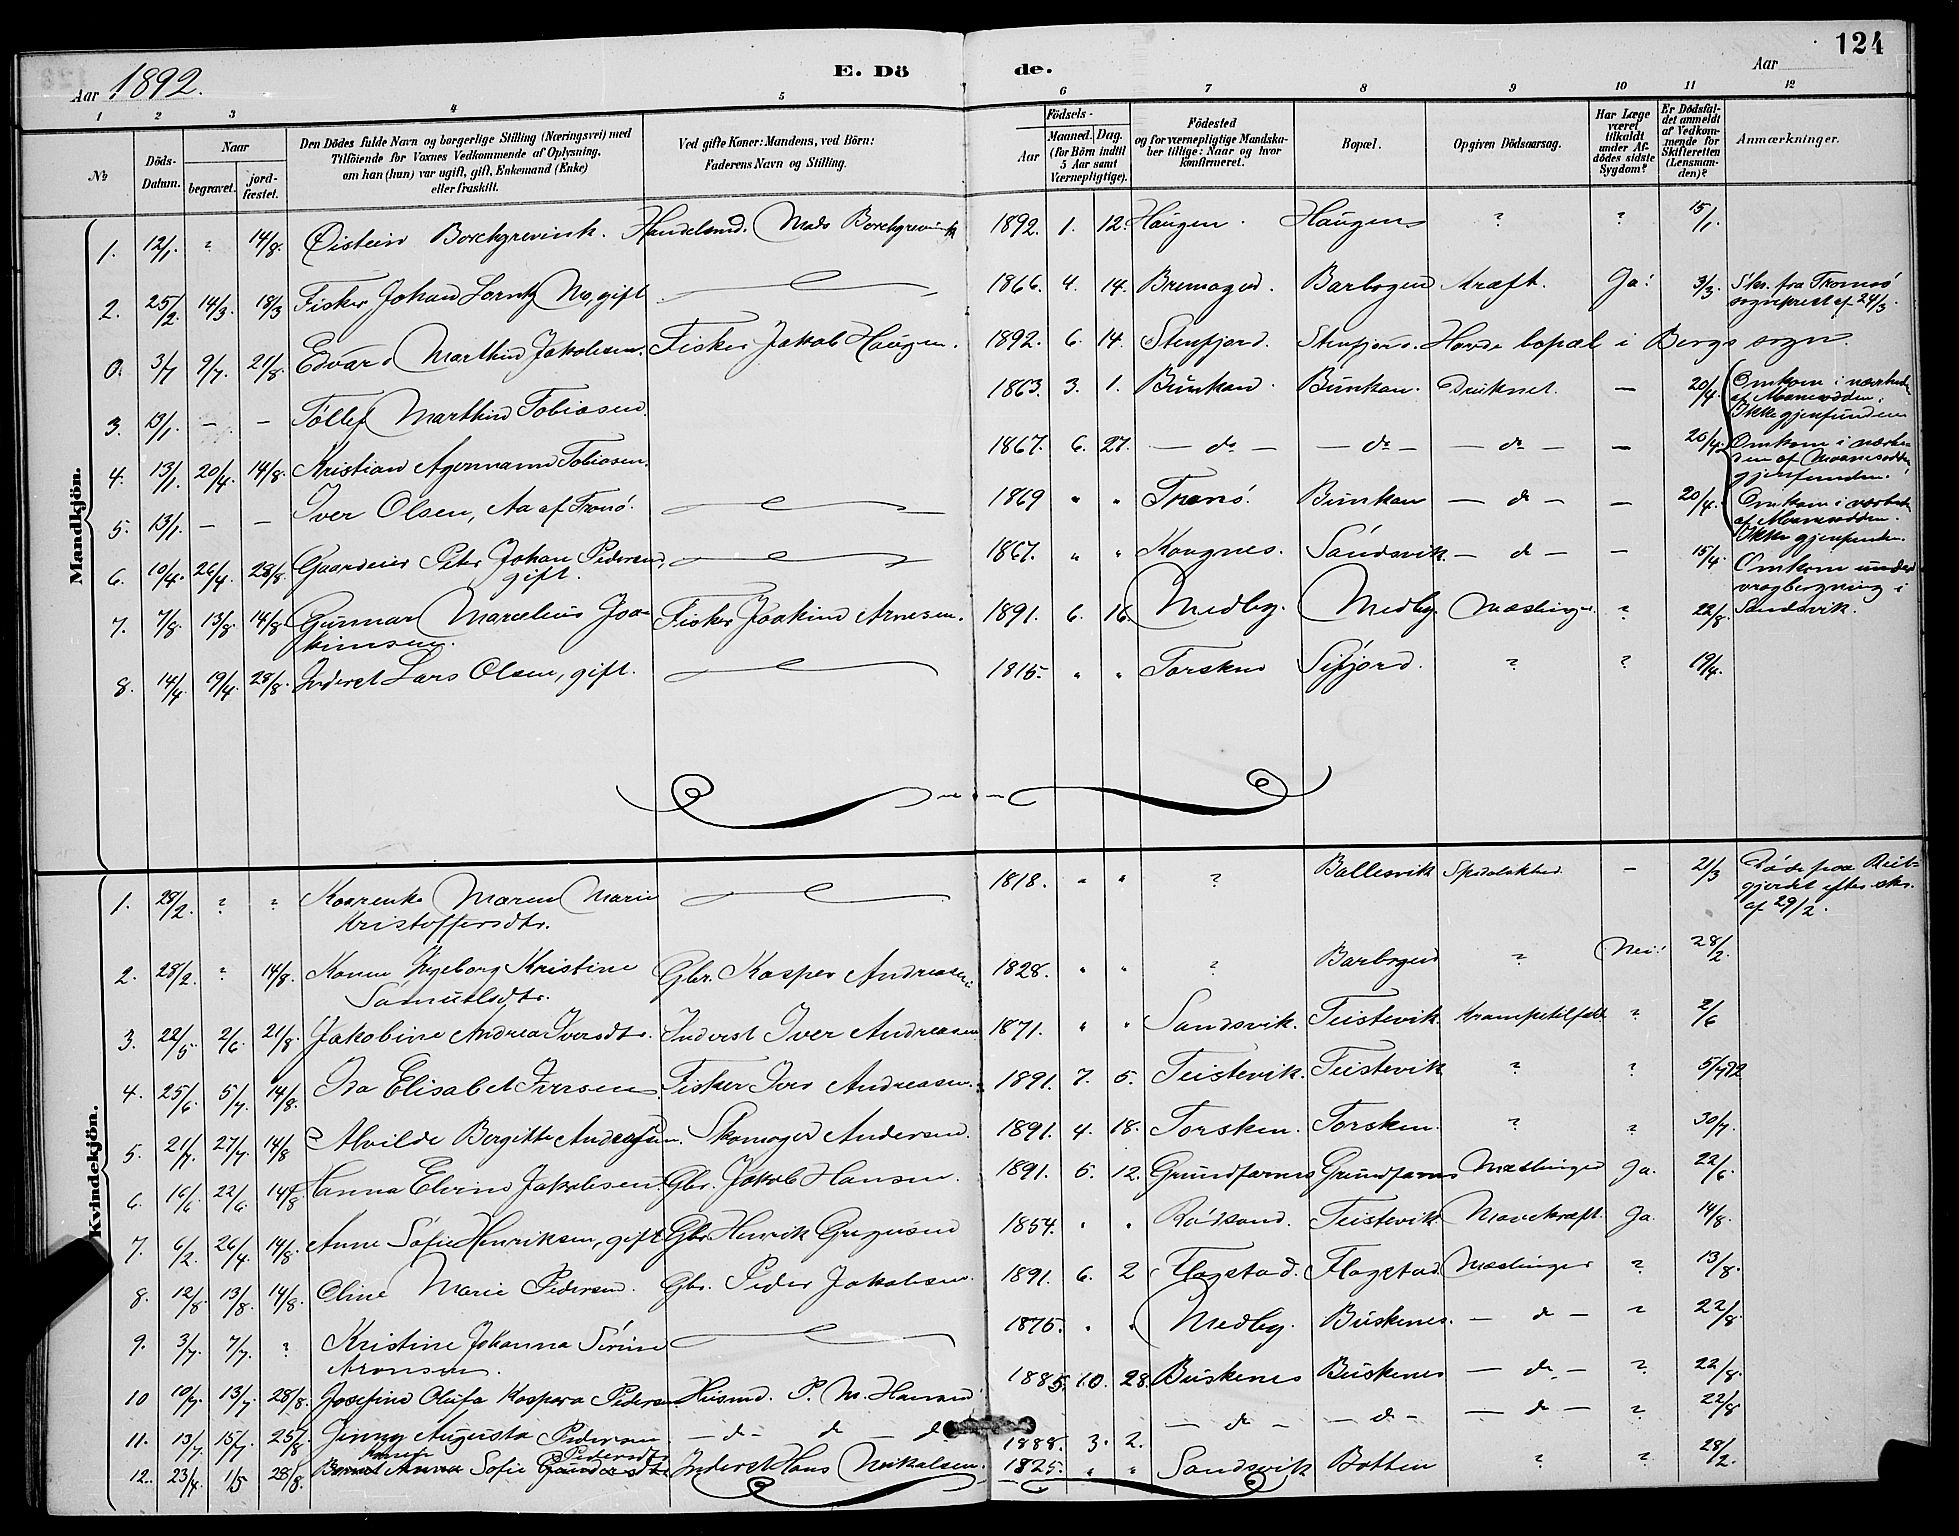 124
Aar 1892.
E. Dö de.
Aar
1 2 3 4 5 6 7 8 9 10 11 12
№
Döds-Datum.
Naar
begravet.
jord-fæstet.
Den Dödes fulde Navn og borgerlige Stilling (Næringsvei) med
Tilföiende for Voxnes Vedkommende af Oplysning,
om han (hun) var ugift, gift, Enkemand (Enke)
eller fraskilt.
Ved gifte Koner: Mandens, ved Börn:
Faderens Navn og Stilling.
Födsels-
Aar
Maaned. Dag.
(for Börn indtil
5 Aar samt
Værnepligtige).
Födested
og for værnepligtige Mandska-
ber tillige: Naar og hvor
konfirmeret.
Bopæl.
Opgiven Dödsaarsag.
Har Læge
været
tilkaldt
under Af-
dödes sidste
Sygdom?
Er Dödsfal-
det anmeldt
af Vedkom-
mende for
Skifteretten
(Lensman-
den)?
Anmærkninger.
Mandkjön.
1. 12/1. ? 14/8. Øistein Borchgrevink. Handelsmd. Mads Borchgrevink 1892. 1. 12. Haugen. Haugen ? ? 15/1.
2. 25/2. 14/3. 18/3 Fisker Johan Lorntz No, gift 1866. 4. 14. Bremoged. Barbogen Kræft. Ja! 3/3. Skr. fra Tromsö
sogneprest af 24/3.
0. 3/7 9/7. 21/8. Edvard Marthin Jakobsen. Fisker Jakob Haugen. 1892. 6. 14. Stenfjord. Stenfjord. Havde bopæl i Bergs sogn.
3. 13/1. — — Tollef Marthin Tobiasen. 1863. 3. 1. Bunkan. Bunkan. Druknet. — 20/4. Omkom i nærhed
af Maanesodden.
Ikke gjenfunden
4. 13/1. 20/4. 14/8. Kristian Agermann Tobiasen. 1867. 6. 27. — do — — do — — do — — 20/4. Omkom i nærhe-
den af Maanesodden
gjenfunden.
5. 13/1. — — Iver Olsen, Aa af Tranö. 1869 " " Tranö. Bunkan — do — — 20/4. Omkom i nærhed
af Maanesodden.
Ikke gjenfunden.
6. 10/4. 26/4. 28/8. Gaardeier Peter Johan Pedersen,
gift. 1867. " " Kaagnes. Sandsvik. — do — — 15/4. Omkom under
vragbergning i
Sandsvik.
7. 7/8. 13/8. 14/8 Gunnar Marcelius Joa-
kimsen. Fisker Joakim Arnesen. 1891. 6. 16. Medby. Medby. Mæslinger. ? 22/8.
8. 14/4. 19/4. 28/8. Inderst Lars Olsen, gift. 1815. " " Torsken Sifjord. ? ? 19/4.
Kvindekjön.
1. 28/2. ? ? Kaarenke Maren Marie
Kristoffersdtr. 1818. " " ? Ballesvik Spedalskhed. — 21/3 Døde paa Reit-
gjerdet efter skr.
af 29/2.
2. 28/2. ? 14/8. Konen Ingeborg Kristine
Samuelsdtr. Gbr. Kasper Andreasen. 1828. " " ? Barbogen ? Nei! 28/2.
3. 22/5 2/6. 21/8. Jakobine Andrea Iversdtr. Inderst Iver Andreasen 1871. " " Sandsvik. Teistevik. Krampetilfeld ? 2/6
4. 25/6. 5/7. 14/8. Ida Elisabet Iversen Fisker Iver Andreasen. 1891. 7. 5. Teistevik. Teistevik ? ? 5/7 92
5. 21/7. 27/7. 14/8 Alvilde Bergitte Andreasen. Skomager Andersen. 1891. 4. 18. Torsken. Torsken. ? ? 30/7.
6. 16/6 22/6. 14/8 Hanna Elvine Jakobsen. Gbr. Jakob Hansen. 1891. 5. 12. Grundfarnes Grundfarnes Mæslinger Ja. 22/6.
7. 6/2. 26/4. 14/8. Anne Sofie Henriksen, gift Gbr. Henrik Gregusen 1854. " " Rödsand. Teistevik. Mavekræft. Ja. 14/8.
8. 12/8. 13/8. 14/8. Oline Marie Pedersen. Gbr. Peder Jakobsen. 1891. 6. 2 Flagstad. Flagstad. Mæslinger ? 13/8.
9. 3/7. 7/7. ? Kristine Johanna Sörine
Aronsen. 1875. " " Medby. Buskenes. — do — ? 22/8.
10 10/7. 13/7. 28/8. Josefine Olufa Kaspara Pedersen Husmd. P. M. Hansen 1885. 10. 28. Buskenes Buskenes — do — ? 22/8.
11. 13/7 15/7. 25/8. Jenny Augusta Pedersen — do — do — do 1888. 3. 2. — do — — do — — do — ? 22/8
12. 23/4. 1/5 28/8. Sofie Pedersdtr Inderst Hans Nickolaisen. 1825. " " Sandsvik Botten ? ? 28/2.